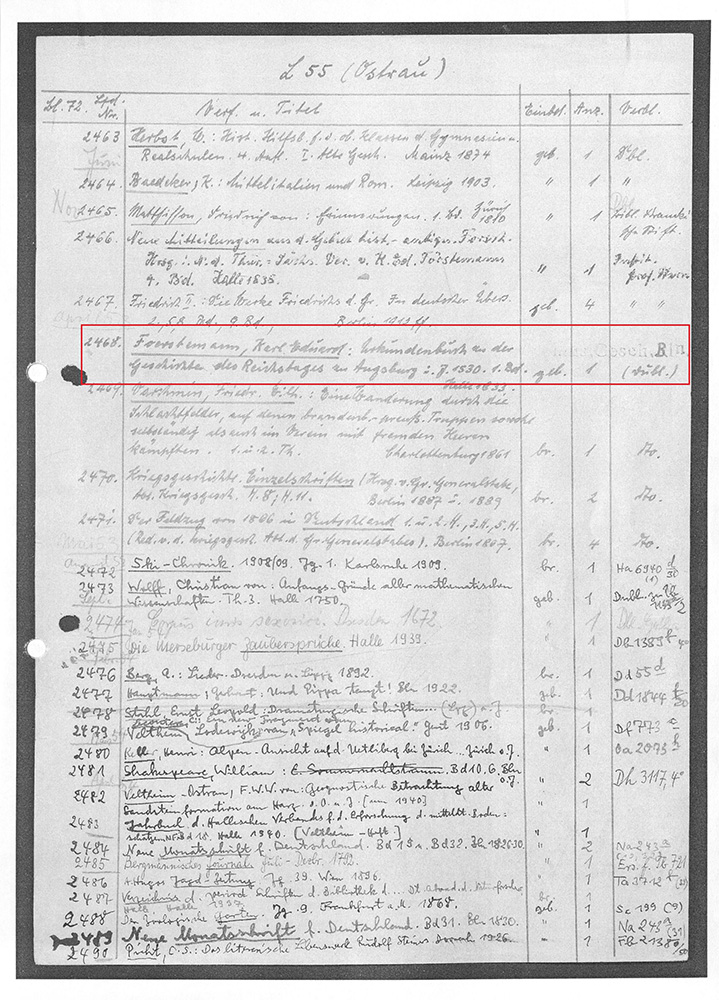 L 55 (Ostrau)
Bl. 72. Lfd. Nr. Verf. u. Titel Einbd. Anz. Verbl.
2463 Herbst, W.: Hist. Hilfsb. f. d. ob. Klassen d. Gymnasien u.
Realschulen. 4. Aufl. I. Alte Gesch. Mainz 1874 geb. 1 Dbl.
Juni
2464. Baedeker, K.: Mittelitalien und Rom. Leipzig 1903. " 1 "
Nov.
2465. Matthisson, Friedrich von: Erinnerungen. 1. Bd. Zürich 1810 " 1
2466. Neue Mitteilungen aus d. Gebiet hist.-antiqu. Forsch.
Hrsg.: v. d. Thür.-Sächs. Ver. v. K. Ed. Förstemann
4. Bd. Halle 1838. " 1
2467. Friedrich II.: Die Werke Friedrichs d. Gr. In deutscher Übers.
Berlin 1913 ff. geb. 4 " "
2468. Foerstemann, Karl Eduard: Urkundenbuch zu der
Geschichte des Reichstages zu Augsburg i. J. 1530. 1. Bd. geb. 1 (Dubl.)
Halle 1833.
2469. Friedr. Wilh.: Eine Wanderung durch die
Schlachtfelder, auf denen brandenb.-preuß. Truppen sowohl
selbständig als auch im Verein mit fremden Heeren
kämpften. 1. u. 2. Th. Charlottenburg 1861 br. 1 dto.
2470. Kriegsgeschichtl. Einzelschriften (Hrsg. v. Gr. Generalstabe,
Abt. Kriegsgesch. H. 8, H. 11. Berlin 1887 u. 1889 br. 2 dto.
2471. Der Feldzug von 1866 in Deutschland. 1. u. 2. H., 3. H., 5. H.
(Red. v. d. kriegsgesch. Abt. d. Gr. Generalstabes). Berlin 1867. br. 4 dto.
2472 Ski-Chronik. 1908/09. Jg. 1. Karlsruhe 1909. br. 1 Ha 6940
2473 Wolff, Christian von: Anfangs-Gründe aller mathematischen
Wissenschaften. Th. 3. Halle 1750 geb. 1
2474 Corpus iuris Dresden 1672. " 1
2475 Die Merseburger Zaubersprüche. Halle 1939. " 1 Dh 1389
2476 Berg, A.: Lieder. Dresden u. Leipz. 1892. br. 1 Dd 55 d
2477 Hauptmann, Gerhart: Und Pippa tanzt! Bln 1922. geb. 1 Dd 1844
2478 Stahl, Ernst Leopold: Dramaturgische Schriften... (Lpz) o. J. br. 1
2479 Veltheim, Lodewijk van, "Spiegel historical." Gent 1906. geb. 1 Df 773
2480 Keller, Henri: Alpen-Ansicht auf d. Uetliberg bei Zürich... Zürich o. J. " 1 Oa 2073
2481 Shakespeare, William: E. Sommernachtstraum. Bd 10. G. Bln o. J. " 2 Dh 3117, 4°
2482 Veltheim-Ostrau, F. W. W. van: Geognostische Betrachtung alter
Sandsteinformation am Harz. o. O. o. J. [um 1940] " 1
2483 Jahrbuch d. Halleschen Verbandes f. d. Erforschung d. mitteldt. Boden-
schätze. NF. Bd 18. Halle 1940. [Veltheim-Heft] " 1
2484 Neue Monatsschrift f. Deutschland. Bd 19 u. Bd 32. Bln 1826.30. " 2 Na 243
2485 Bergmännisches Journal. Juli-Dezbr. 1792. " 1
2486 A. Hugos Jagd-Zeitung. Jg. 39. Wien 1896. " 1 Ta 3712
2487 Verzeichnis d. Schriften d. Bibliothek d...
2488 Der Zoologische Garten. Jg. 9. Frankfurt a. M. 1868. geb. 1 Sc 199 (9)
2489 Neue Monatsschrift f. Deutschland. Bd 31. Bln 1830. " 1 Na 243 (31)
2490 Picht, C. S.: Das literarische Lebenswerk Rudolf Steiners. Dornach 1926. " 1 Fb 2138